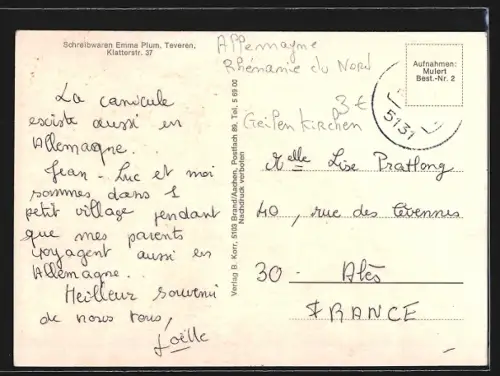 Schreibwaren Emma Plum, Teveren,
Klatterstr. 37
Allemagne
Rhénanie du Nord
3 €
Geilenkirchen
Aufnahmen:
Mulert
Best.-Nr. 2
5131
La canicule
existe aussi en
Allemagne..
Jean-Luc et moi
sommes dans 1
petit village pendant
que mes parents
voyagent aussi en
Allemagne..
Meilleur souvenir
de nous tous,
Joëlle
Verlag B. Korr, 5103 Brand/Aachen, Postfach 89, Tel. 5 69 00
Nachdruck verboten
Melle Lise Pratlong
40, rue des Cévennes
30 - Alès
FRANCE